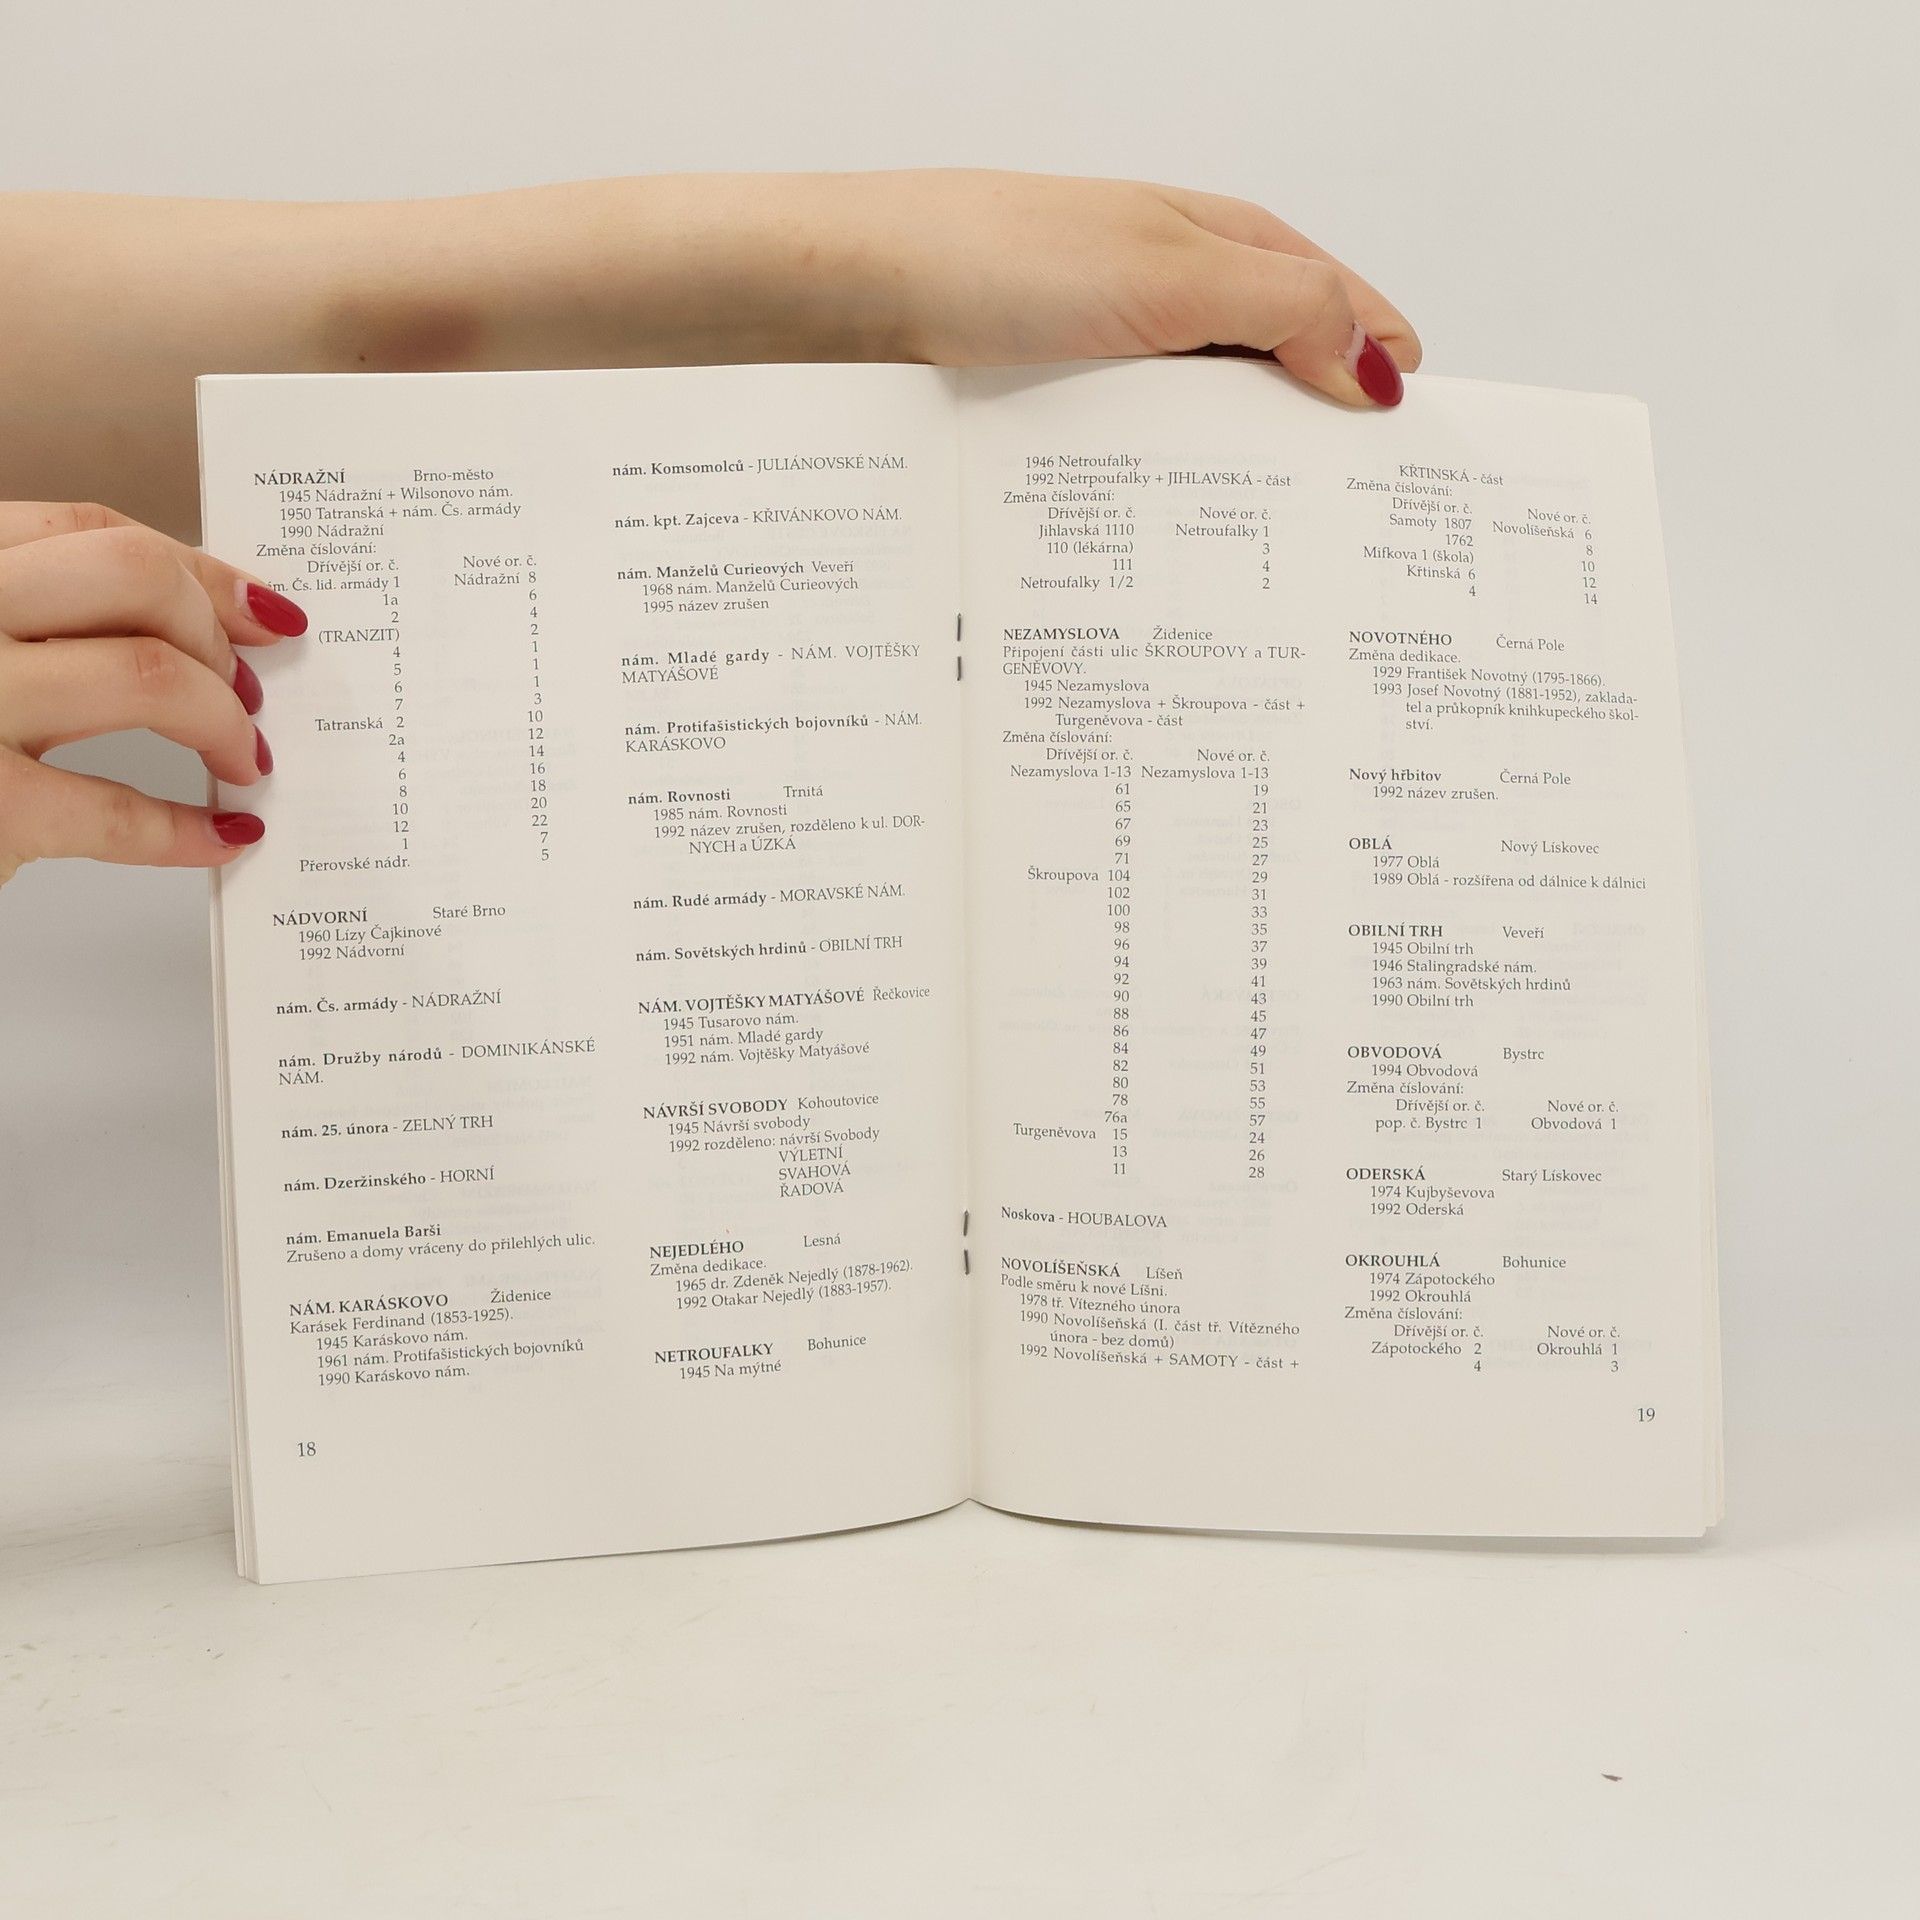 NÁDRAŽNÍ Brno-město
1945 Nádražní + Wilsonovo nám.
1950 Tatranská + nám. Čs. armády
1990 Nádražní
Změna číslování:
Dřívější or. č. Nové or. č.
Čs. lid. armády 1 Nádražní 8
1a 6
2 4
(TRANZIT) 2
4 1
5 1
6 1
7 3
Tatranská 2 10
2a 12
4 14
6 16
8 18
10 20
12 22
1 7
Přerovské nádr. 5
NÁDVORNÍ Staré Brno
1960 Lízy Čajkinové
1992 Nádvorní
nám. Čs. armády - NÁDRAŽNÍ
nám. Družby národů - DOMINIKÁNSKÉ
NÁM.
nám. 25. února - ZELNÝ TRH
nám. Dzeržinského - HORNÍ
nám. Emanuela Barši
Zrušeno a domy vráceny do přilehlých ulic.
NÁM. KARÁSKOVO Židenice
Karásek Ferdinand (1853-1925).
1945 Karáskovo nám.
1961 nám. Protifašistických bojovníků
1990 Karáskovo nám.
18
nám. Komsomolců - JULIÁNOVSKÉ NÁM.
nám. kpt. Zajceva - KŘIVÁNKOVO NÁM.
nám. Manželů Curieových Veveří
1968 nám. Manželů Curieových
1995 název zrušen
nám. Mladé gardy - NÁM. VOJTĚŠKY
MATYÁŠOVÉ
nám. Protifašistických bojovníků - NÁM.
KARÁSKOVO
nám. Rovnosti Trnitá
1985 nám. Rovnosti
1992 název zrušen, rozděleno k ul. DOR-
NYCH a ÚZKÁ
nám. Rudé armády - MORAVSKÉ NÁM.
nám. Sovětských hrdinů - OBILNÍ TRH
NÁM. VOJTĚŠKY MATYÁŠOVÉ Řečkovice
1945 Tusarovo nám.
1951 nám. Mladé gardy
1992 nám. Vojtěšky Matyášové
NÁVRŠÍ SVOBODY Kohoutovice
1945 Návrší svobody
1992 rozděleno: návrší Svobody
VÝLETNÍ
SVAHOVÁ
ŘADOVÁ
NEJEDLÉHO Lesná
Změna dedikace.
1965 dr. Zdeněk Nejedlý (1878-1962).
1992 Otakar Nejedlý (1883-1957).
NETROUFALKY Bohunice
1945 Na mýtné
1946 Netroufalky
1992 Netrpoufalky + JIHLAVSKÁ - část
Změna číslování:
Dřívější or. č. Nové or. č.
Jihlavská 1110 Netroufalky 1
110 (lékárna) 3
111 4
Netroufalky 1/2 2
NEZAMYSLOVA Židenice
Připojení části ulic ŠKROUPOVY a TUR-
GENĚVOVY.
1945 Nezamyslova
1992 Nezamyslova + Škroupova - část +
Turgeněvova - část
Změna číslování:
Dřívější or. č. Nové or. č.
Nezamyslova 1-13 Nezamyslova 1-13
61 19
65 21
67 23
69 25
71 27
Škroupova 104 29
102 31
100 33
98 35
96 37
94 39
92 41
90 43
88 45
86 47
84 49
82 51
80 53
78 55
76a 57
Turgeněvova 15 24
13 26
11 28
Noskova - HOUBALOVA
NOVOLÍŠEŇSKÁ Líšeň
Podle směru k nové Líšni.
1978 tř. Vítezného února
1990 Novolíšeňská (I. část tř. Vítězného
února - bez domů)
1992 Novolíšeňská + SAMOTY - část +
KŘTINSKÁ - část
Změna číslování:
Dřívější or. č. Nové or. č.
Samoty 1807 Novolíšeňská 6
1762 8
Mifkova 1 (škola) 10
Křtinská 6 12
4 14
NOVOTNÉHO Černá Pole
Změna dedikace.
1929 František Novotný (1795-1866).
1993 Josef Novotný (1881-1952), zaklada-
tel a průkopník knihkupeckého škol-
ství.
Nový hřbitov Černá Pole
1992 název zrušen.
OBLÁ Nový Lískovec
1977 Oblá
1989 Oblá - rozšířena od dálnice k dálnici
OBILNÍ TRH Veveří
1945 Obilní trh
1946 Stalingradské nám.
1963 nám. Sovětských hrdinů
1990 Obilní trh
OBVODOVÁ Bystrc
1994 Obvodová
Změna číslování:
Dřívější or. č. Nové or. č.
pop. č. Bystrc 1 Obvodová 1
ODERSKÁ Starý Lískovec
1974 Kujbyševova
1992 Oderská
OKROUHLÁ Bohunice
1974 Zápotockého
1992 Okrouhlá
Změna číslování:
Dřívější or. č. Nové or. č.
Zápotockého 2 Okrouhlá 1
4 3
19